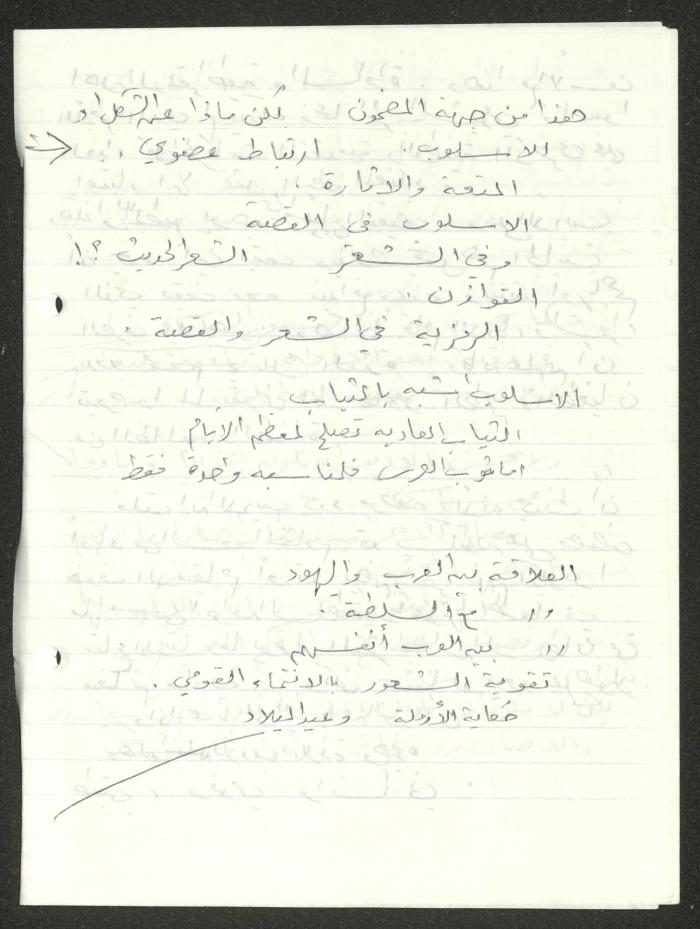 هذا من جهة المضمون لكن ماذا عن الشكل او
الاسلوب. ارتباط عضوي.
المتعة والاثارة.
الاسلوب في القصة
وفي الشعر الشعر الحديث؟!
التوازن
الرمزية في الشعر والقصة.
الاسلوب أشبه بالثياب
الثياب العاديه تصلح لمعظم الأيام
اما ثوب العرس فلمناسبه واحدة فقط
العلاقة بين العرب واليهود
〃 مع السلطة.
〃 بين العرب أنفسهم
تقوية الشعور بالانتماء القومي.
حكاية الأرملة وعيد الميلاد